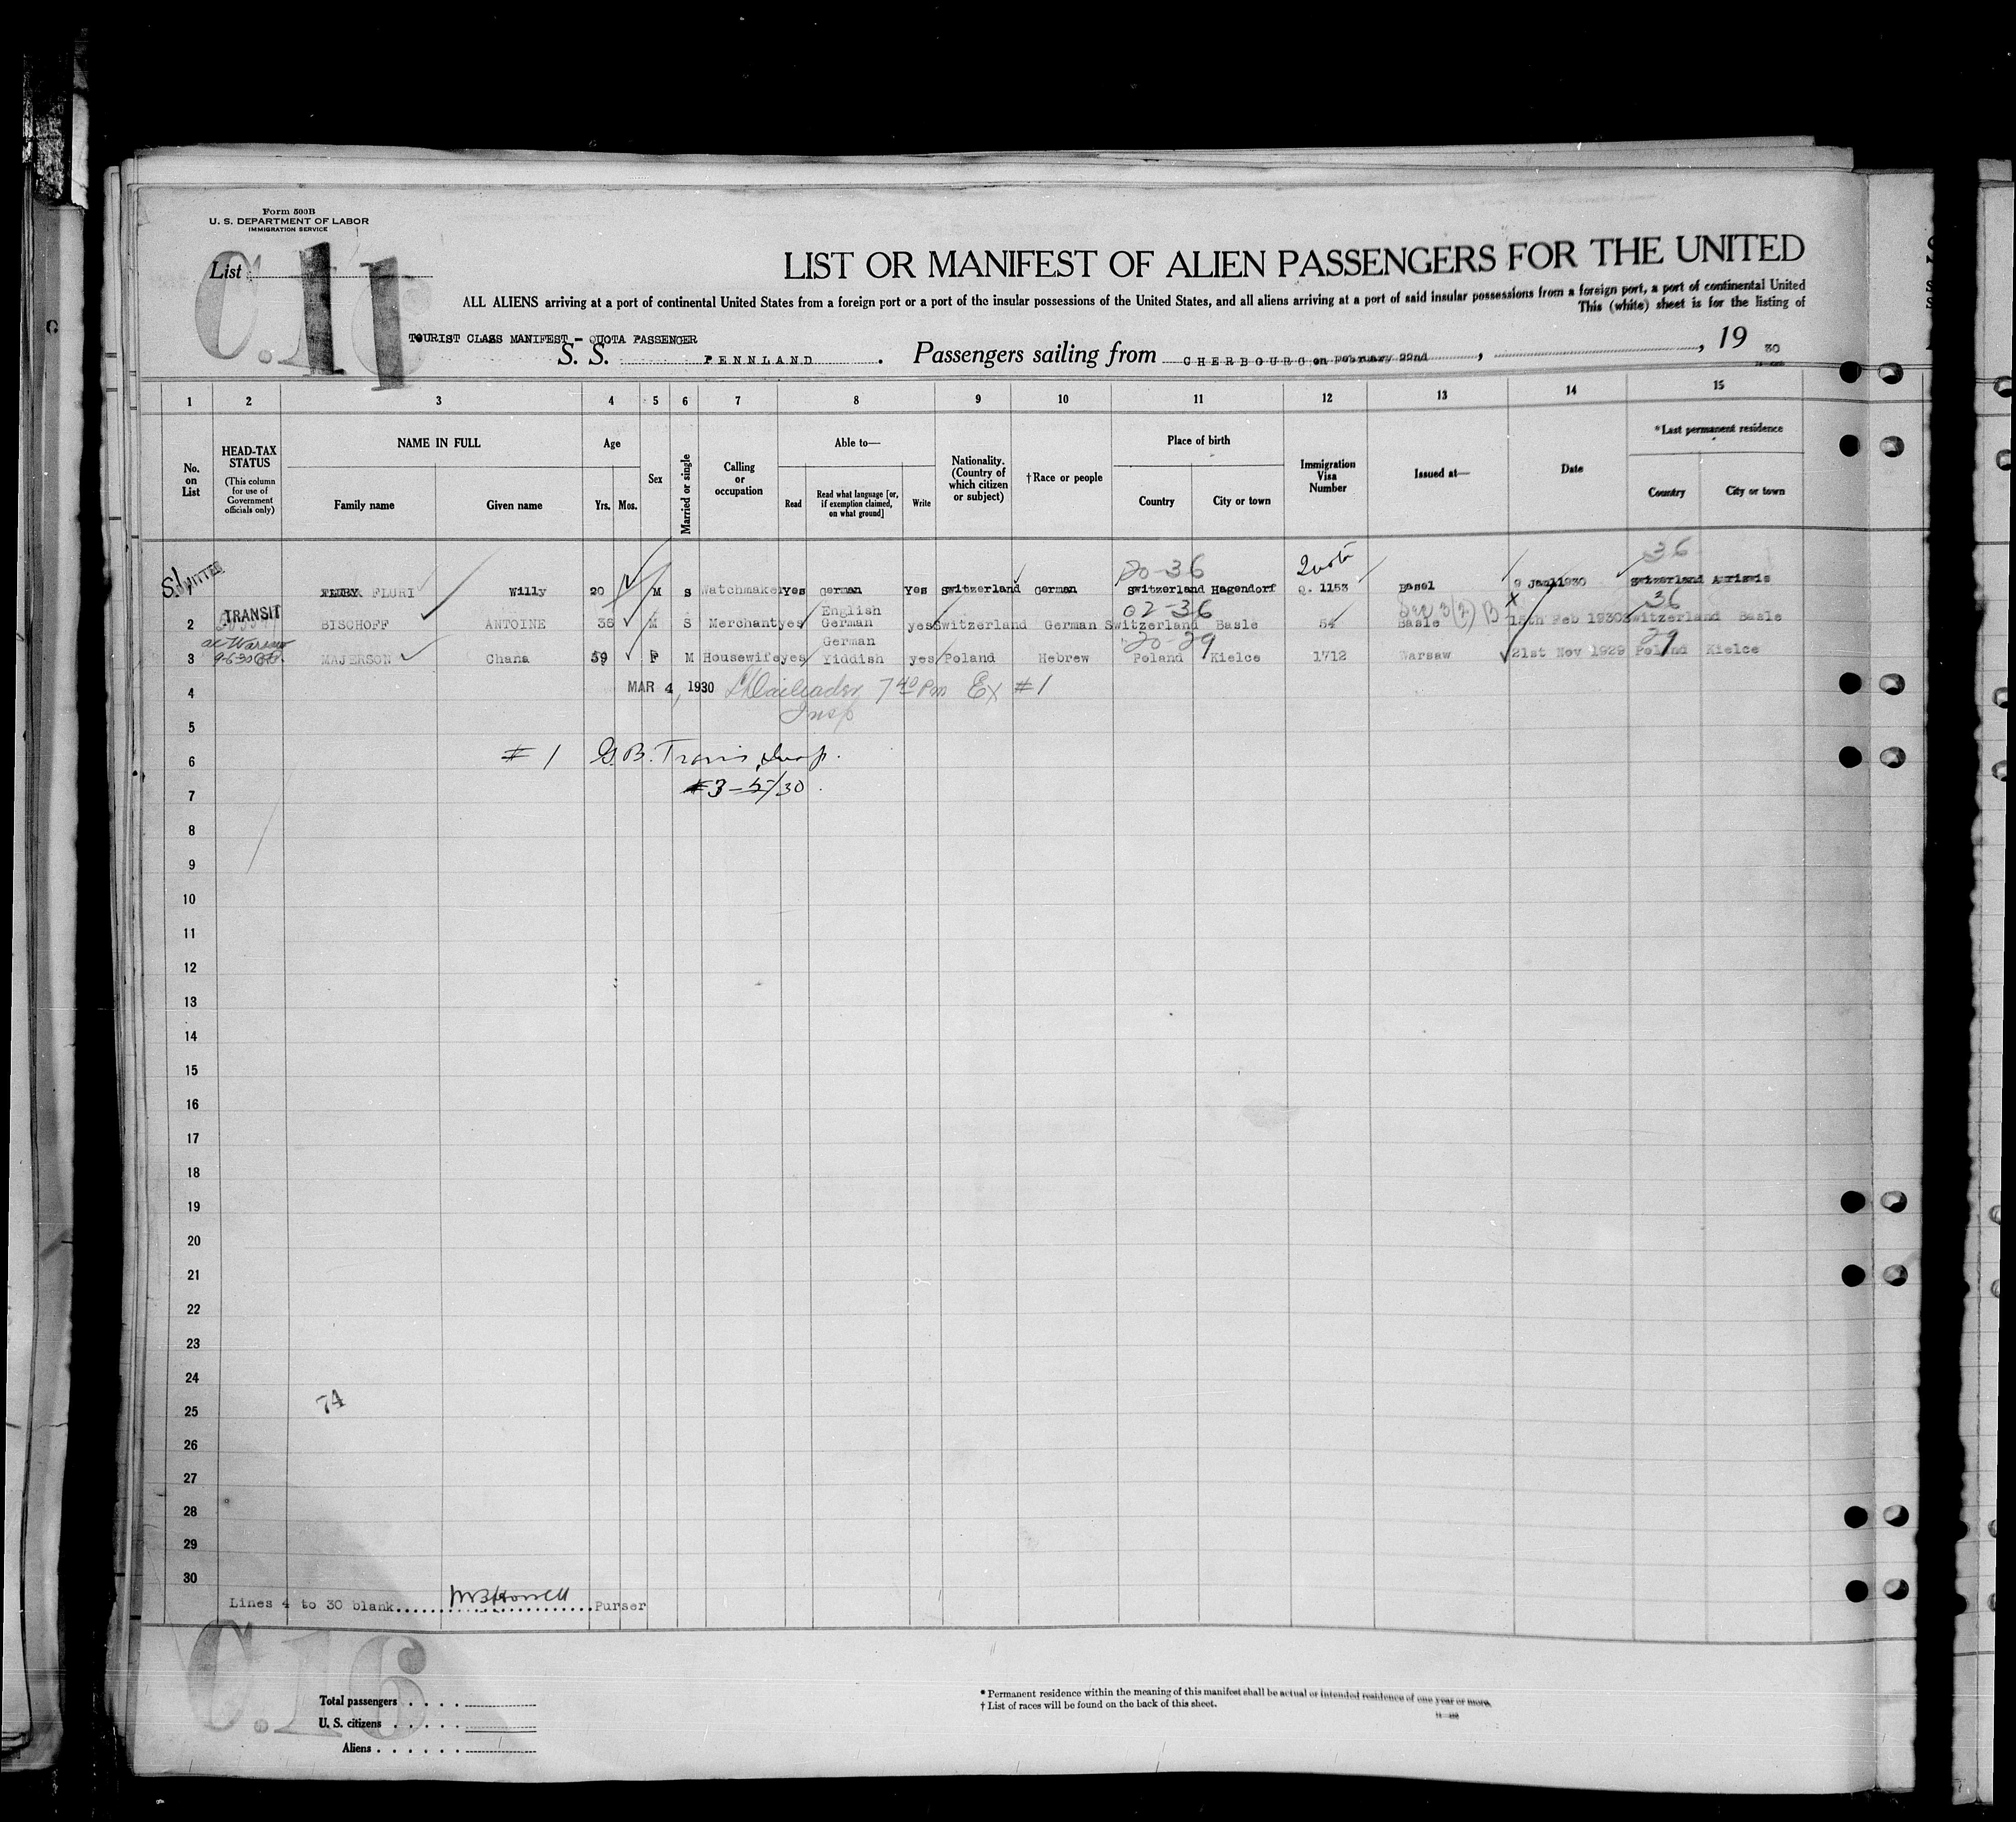 Form 500B
U. S. DEPARTMENT OF LABOR
IMMIGRATION SERVICE
List
11
LIST OR MANIFEST OF ALIEN PASSENGERS FOR THE UNITED
ALL ALIENS arriving at a port of continental United States from a foreign port or a port of the insular possessions of the United States, and all aliens arriving at a port of said insular possessions from a foreign port, a port of continental United
This (white) sheet is for the listing of
TOURIST CLASS MANIFEST - QUOTA PASSENGER
S. S. PENNLAND. Passengers sailing from CHERBOURG on February 22nd, , 19 30
1 2 3 4 5 6 7 8 9 10 11 12 13 14 15
No. on List
HEAD-TAX STATUS (This column for use of Government officials only)
NAME IN FULL
Family name Given name
Age
Yrs. Mos.
Sex
Married or single
Calling or occupation
Able to—
Read
Read what language [or, if exemption claimed, on what ground]
Write
Nationality. (Country of which citizen or subject)
†Race or people
Place of birth
Country City or town
Immigration Visa Number
Issued at—
Date
*Last permanent residence
Country City or town
20-36 Quota 36
FLURI Willy 20 M S Watchmaker Yes German Yes Switzerland German Switzerland Hagendorf Q. 1153 Basel 9 Jan 1930 Switzerland
TRANSIT English 02-36 Sec 3(2) B 36
2 BISCHOFF ANTOINE 38 M S Merchant yes German yes Switzerland German Switzerland Basle 54 Basle 15th Feb 1930 Switzerland Basle
German 20-29 29
3 MAJERSON Chana 39 F M Housewife yes Yiddish yes Poland Hebrew Poland Kielce 1712 Warsaw 21st Nov 1929 Poland Kielce
4 MAR 4, 1930 7 40 Pm Ex #1
5 Insp
6 #1 G.B. Travis, Insp.
7 #3-5/30.
8
9
10
11
12
13
14
15
16
17
18
19
20
21
22
23
24
74
25
26
27
28
29
30
Lines 4 to 30 blank Purser
C.16
Total passengers
U. S. citizens
Aliens
* Permanent residence within the meaning of this manifest shall be actual or intended residence of one year or more.
† List of races will be found on the back of this sheet.